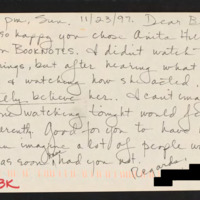 pm, Sun. 11/23/97. Dear B
so happy you chose Anita Hi
on BOOKNOTES. I didn't watch
ings, but after hearing what
& watching how she acted
believe her. I can't imag
watching tonight would f
Good for you to have
imagine a lot of people w
as soon had you not.
Regards,
BK